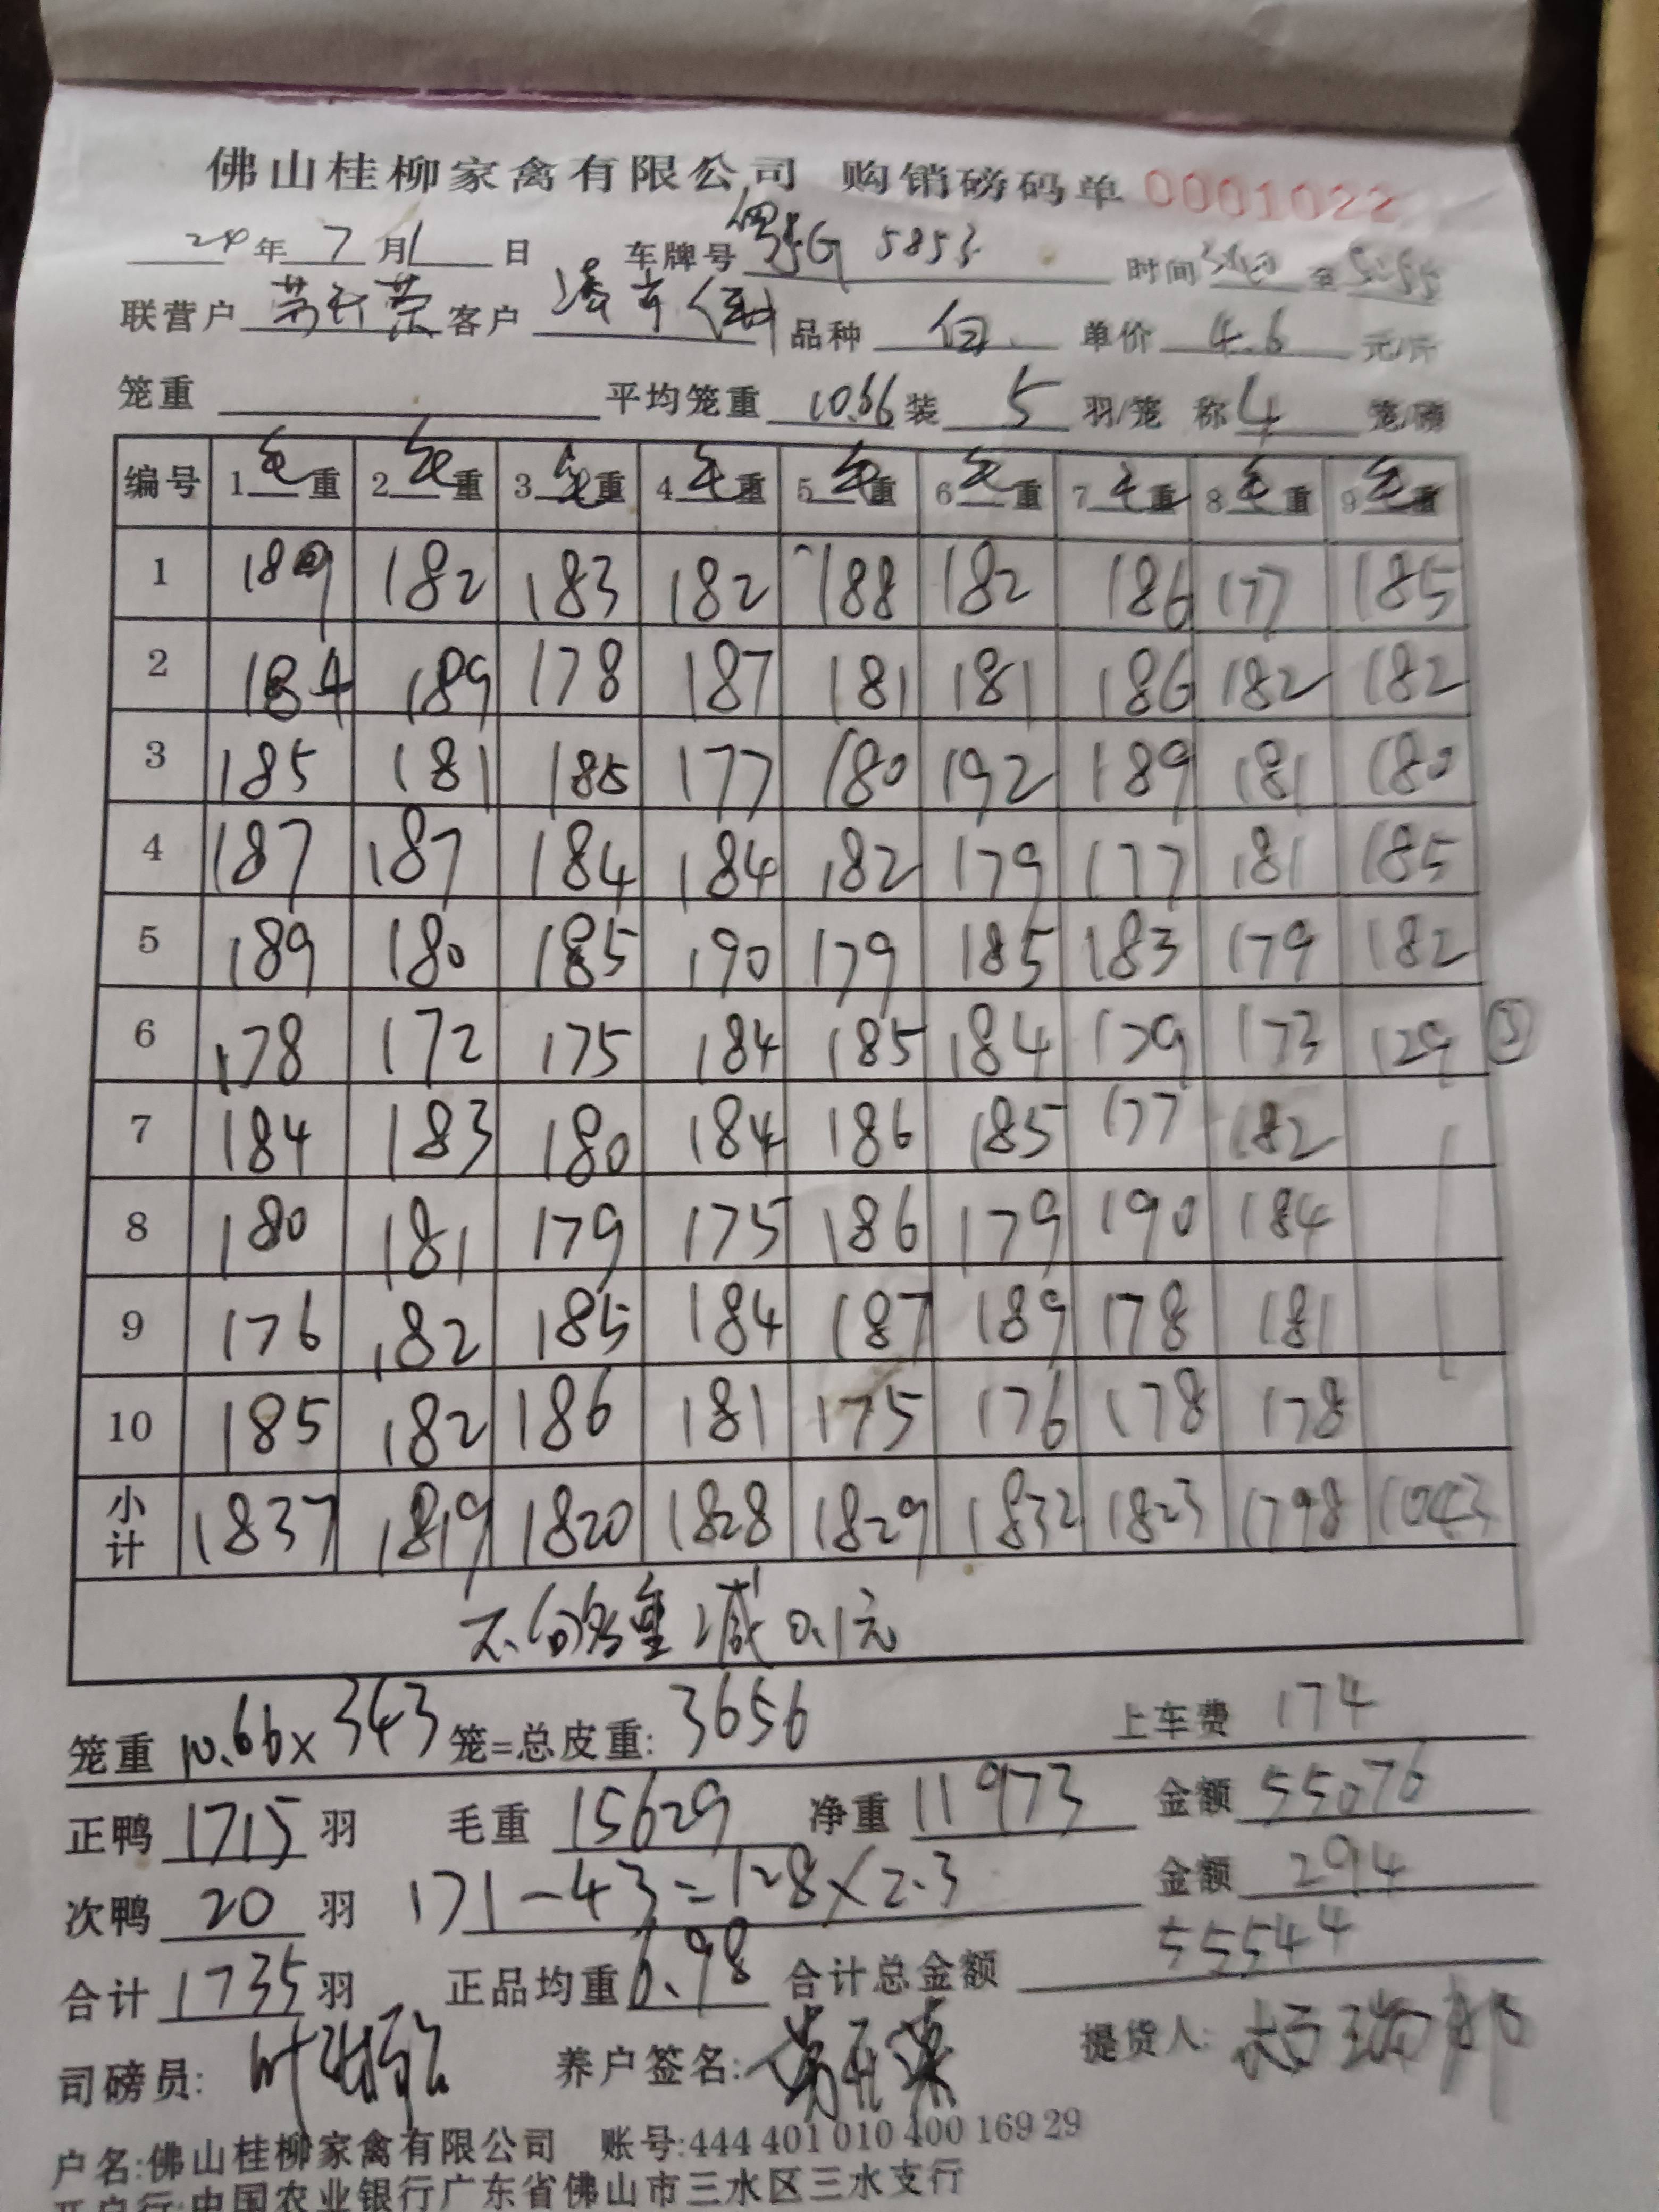 佛山桂柳家禽有限公司 购销磅码单 0001022
24年 7月1日 车牌号 粤G 5853 时间 至
联营户 客户 品种 白 单价 4.6 元/斤
笼重 平均笼重 10.66 装 5 羽/笼 称 4 笼/磅
编号 1毛重 2毛重 3毛重 4毛重 5毛重 6毛重 7毛重 8毛重 9毛重
1 189 182 183 182 188 182 186 177 185
2 184 189 178 187 181 181 186 182 182
3 185 181 185 177 180 192 189 181 180
4 187 187 184 184 182 179 177 181 185
5 189 180 185 190 179 185 183 179 182
6 178 172 175 184 185 184 179 173 129 ③
7 184 183 180 184 186 185 177 182
8 180 181 179 175 186 179 190 184
9 176 182 185 184 187 189 178 181
10 185 182 186 181 175 176 178 178
小计 1837 1819 1820 1828 1829 1832 1823 1798 1043
不够重减0.1元
笼重 10.66×343 笼=总皮重: 3656 上车费 174
正鸭 1715 羽 毛重 15629 净重 11973 金额 55076
次鸭 20 羽 171-43=128×2.3 金额 294
合计 1735 羽 正品均重 6.98 合计总金额 55544
司磅员: 养户签名: 提货人:
户名:佛山桂柳家禽有限公司 账号:444 401 010 400 169 29
开户行:中国农业银行广东省佛山市三水区三水支行